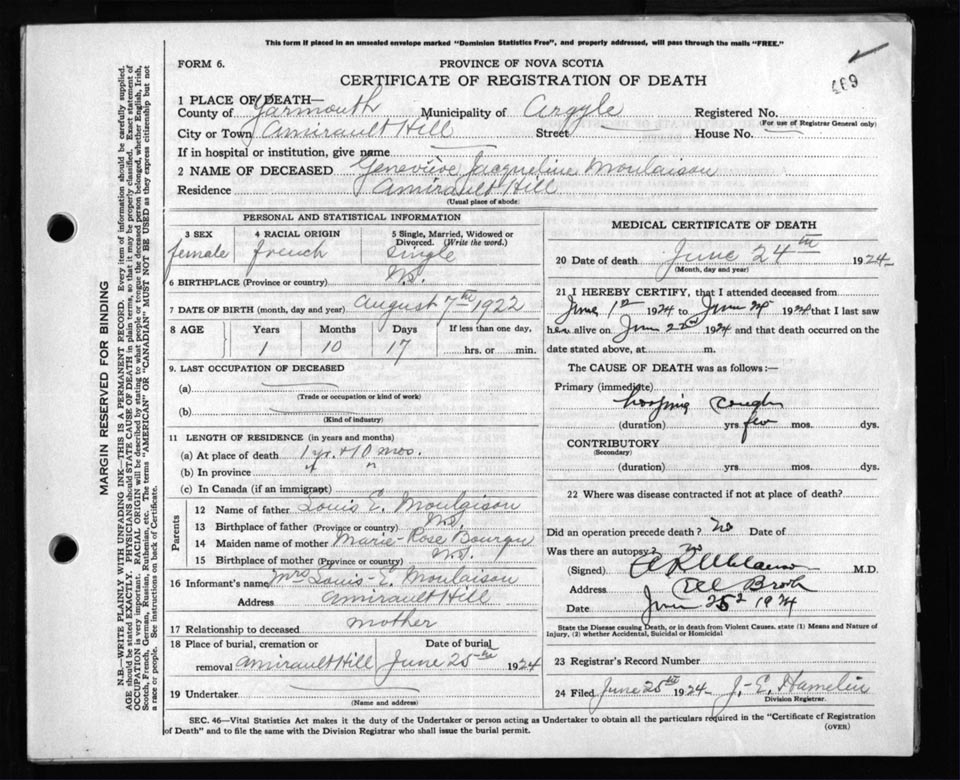 This form if placed in an unsealed envelope marked "Dominion Statistics Free", and properly addressed, will pass through the mails "FREE."
FORM 6.
PROVINCE OF NOVA SCOTIA
CERTIFICATE OF REGISTRATION OF DEATH
1 PLACE OF DEATH—
County of Yarmouth Municipality of Argyle Registered No.
(For use of Registrar General only)
City or Town Amirault Hill Street House No.
If in hospital or institution, give name
2 NAME OF DECEASED Geneviève Jacqueline Moulaison
Residence Amirault Hill
(Usual place of abode)
PERSONAL AND STATISTICAL INFORMATION
3 SEX
female
4 RACIAL ORIGIN
french
5 Single, Married, Widowed or
Divorced. (Write the word.)
Single
6 BIRTHPLACE (Province or country) N.S.
7 DATE OF BIRTH (month, day and year) August 7th 1922
8 AGE Years Months Days If less than one day,
1 10 17 hrs. or min.
9. LAST OCCUPATION OF DECEASED
(a)
(Trade or occupation or kind of work)
(b)
(Kind of industry)
11 LENGTH OF RESIDENCE (in years and months)
(a) At place of death 1 yr. + 10 mos.
(b) In province " "
(c) In Canada (if an immigrant)
Parents
12 Name of father Louis E. Moulaison
13 Birthplace of father (Province or country) N.S.
14 Maiden name of mother Marie-Rose Bourque
15 Birthplace of mother (Province or country) N.S.
16 Informant's name Mrs Louis-E. Moulaison
Address Amirault Hill
17 Relationship to deceased mother
18 Place of burial, cremation or Date of burial
removal Amirault Hill June 25th 1924
19 Undertaker
(Name and address)
MEDICAL CERTIFICATE OF DEATH
20 Date of death June 24th 1924
(Month, day and year)
21 I HEREBY CERTIFY, that I attended deceased from
June 1st 1924 to June 24 1924 that I last saw
her alive on June 22nd 1924 and that death occurred on the
date stated above, at m.
The CAUSE OF DEATH was as follows:—
Primary (immediate)
hooping cough
(duration) yrs. few mos. dys.
CONTRIBUTORY
(Secondary)
(duration) yrs. mos. dys.
22 Where was disease contracted if not at place of death?
Did an operation precede death? no Date of
Was there an autopsy? no
(Signed) M.D.
Address Brook
Date June 25 1924
State the Disease causing Death, or in death from Violent Causes. state (1) Means and Nature of
Injury, (2) whether Accidental, Suicidal or Homicidal
23 Registrar's Record Number
24 Filed June 25th 1924 J.-E. Hamelin
Division Registrar.
SEC. 46—Vital Statistics Act makes it the duty of the Undertaker or person acting as Undertaker to obtain all the particulars required in the "Certificate of Registration
of Death" and to file the same with the Division Registrar who shall issue the burial permit.
(OVER)
MARGIN RESERVED FOR BINDING
N.B.—WRITE PLAINLY WITH UNFADING INK—THIS IS A PERMANENT RECORD. Every item of information should be carefully supplied.
AGE should be stated EXACTLY. PHYSICIANS should STATE CAUSE OF DEATH in plain terms, so that it may be properly classified. Exact statement of
OCCUPATION is very important. RACIAL ORIGIN will be described by stating to what people or tongue the deceased person belonged, whether English, Irish,
Scotch, French, German, Russian, Ruthenian, etc. The terms "AMERICAN" OR "CANADIAN" MUST NOT BE USED as they express citizenship but not
a race or people. See instructions on back of Certificate.